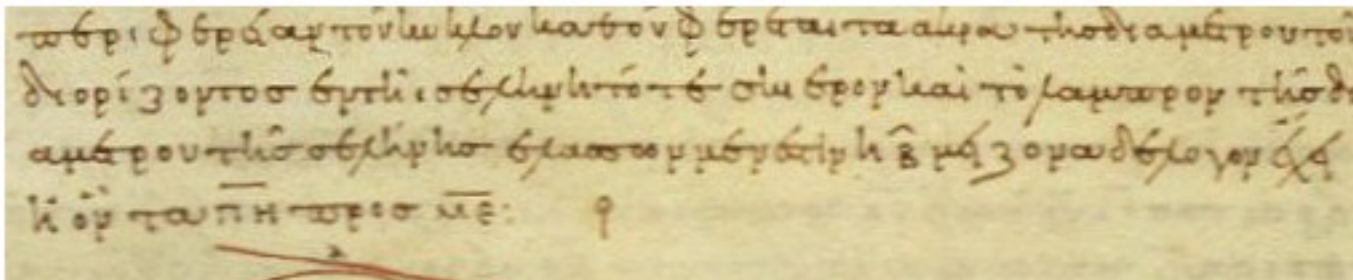 περιφέρειαν τὸν κύκλον καθ' ὃν φέρεται τὰ ἄκρα τῆς διαμέτρου τοῦ
διορίζοντος ἐν τῆι σελήνηι τό τε σκιερὸν καὶ τὸ λαμπρὸν τῆς δι
αμέτρου τῆς σελήνης ἐλάσσων μέν ἐστιν ἢ β̅ μείζονα δὲ λόγον ἔχει
ἢ ὃν τὰ π̅η̅ πρὸς μ̅ε̅: